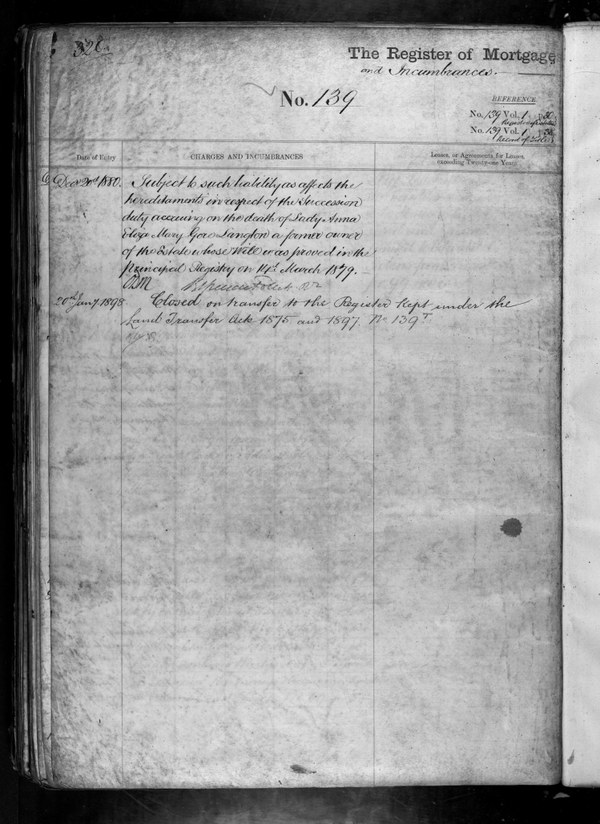 328
The Register of Mortgages
and Incumbrances.
No. 139
REFERENCE.
No. 139 Vol. 1 p.
No. 139 Vol. 1 p.
Record of Title
Date of Entry
CHARGES AND INCUMBRANCES
Leases, or Agreements for Leases,
exceeding Twenty-one Years
Decr 20th 1880. Subject to such liability as affects the
hereditaments in respect of the Succession
duty accruing on the death of Lady Anna
Eliza Mary Gore Langton a former owner
of the Estate whose Will was proved in the
principal Registry on 14th March 1879.
20th Jany 1898 Closed on transfer to the Register kept under the
Land Transfer Acts 1875 and 1897. No 139